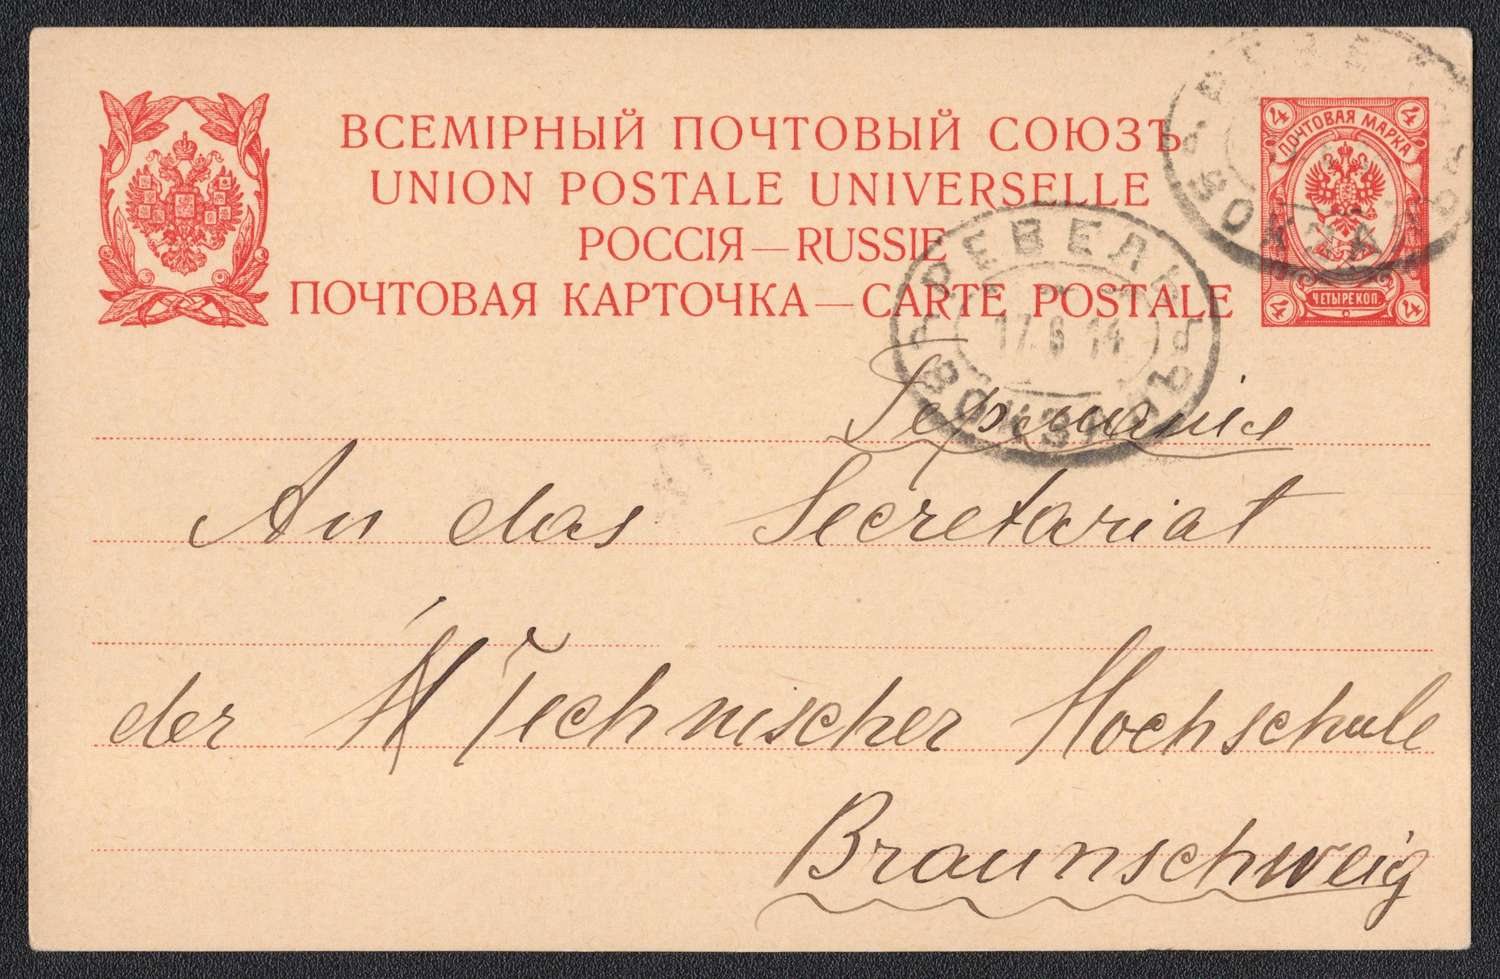 ВСЕМІРНЫЙ ПОЧТОВЫЙ СОЮЗЪ
UNION POSTALE UNIVERSELLE
РОССІЯ — RUSSIE
ПОЧТОВАЯ КАРТОЧКА — CARTE POSTALE
4 4
ПОЧТОВАЯ МАРКА
ЧЕТЫРЕ КОП.
4 4
РЕВЕЛЬ
17.6.14
ВОКЗАЛЪ
Германія
An das Secretariat
der Technischer Hochschule
Braunschweig